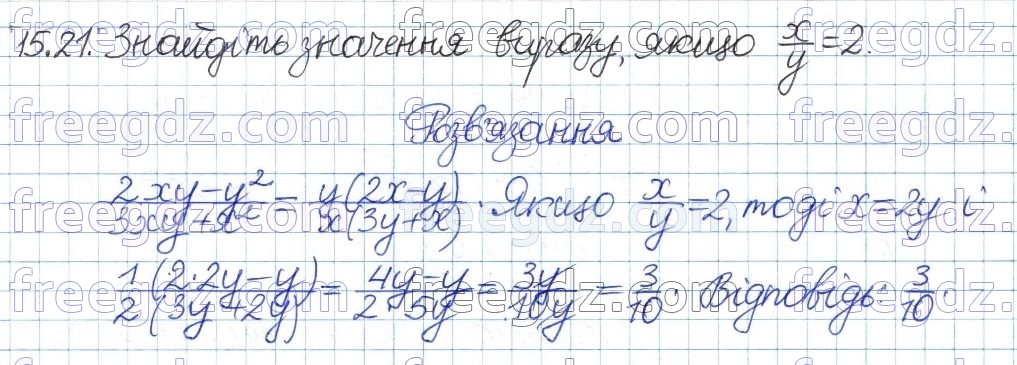 15.21. Знайдіть значення виразу, якщо x/y = 2.
Розв'язання
(2xy - y²)/(3xy + x²) = y(2x - y)/x(3y + x). Якщо x/y = 2, тоді x = 2y і
1(2·2y - y)/2(3y + 2y) = (4y - y)/(2·5y) = 3y/10y = 3/10. Відповідь: 3/10.
freegdz.com freegdz.com freegdz.com